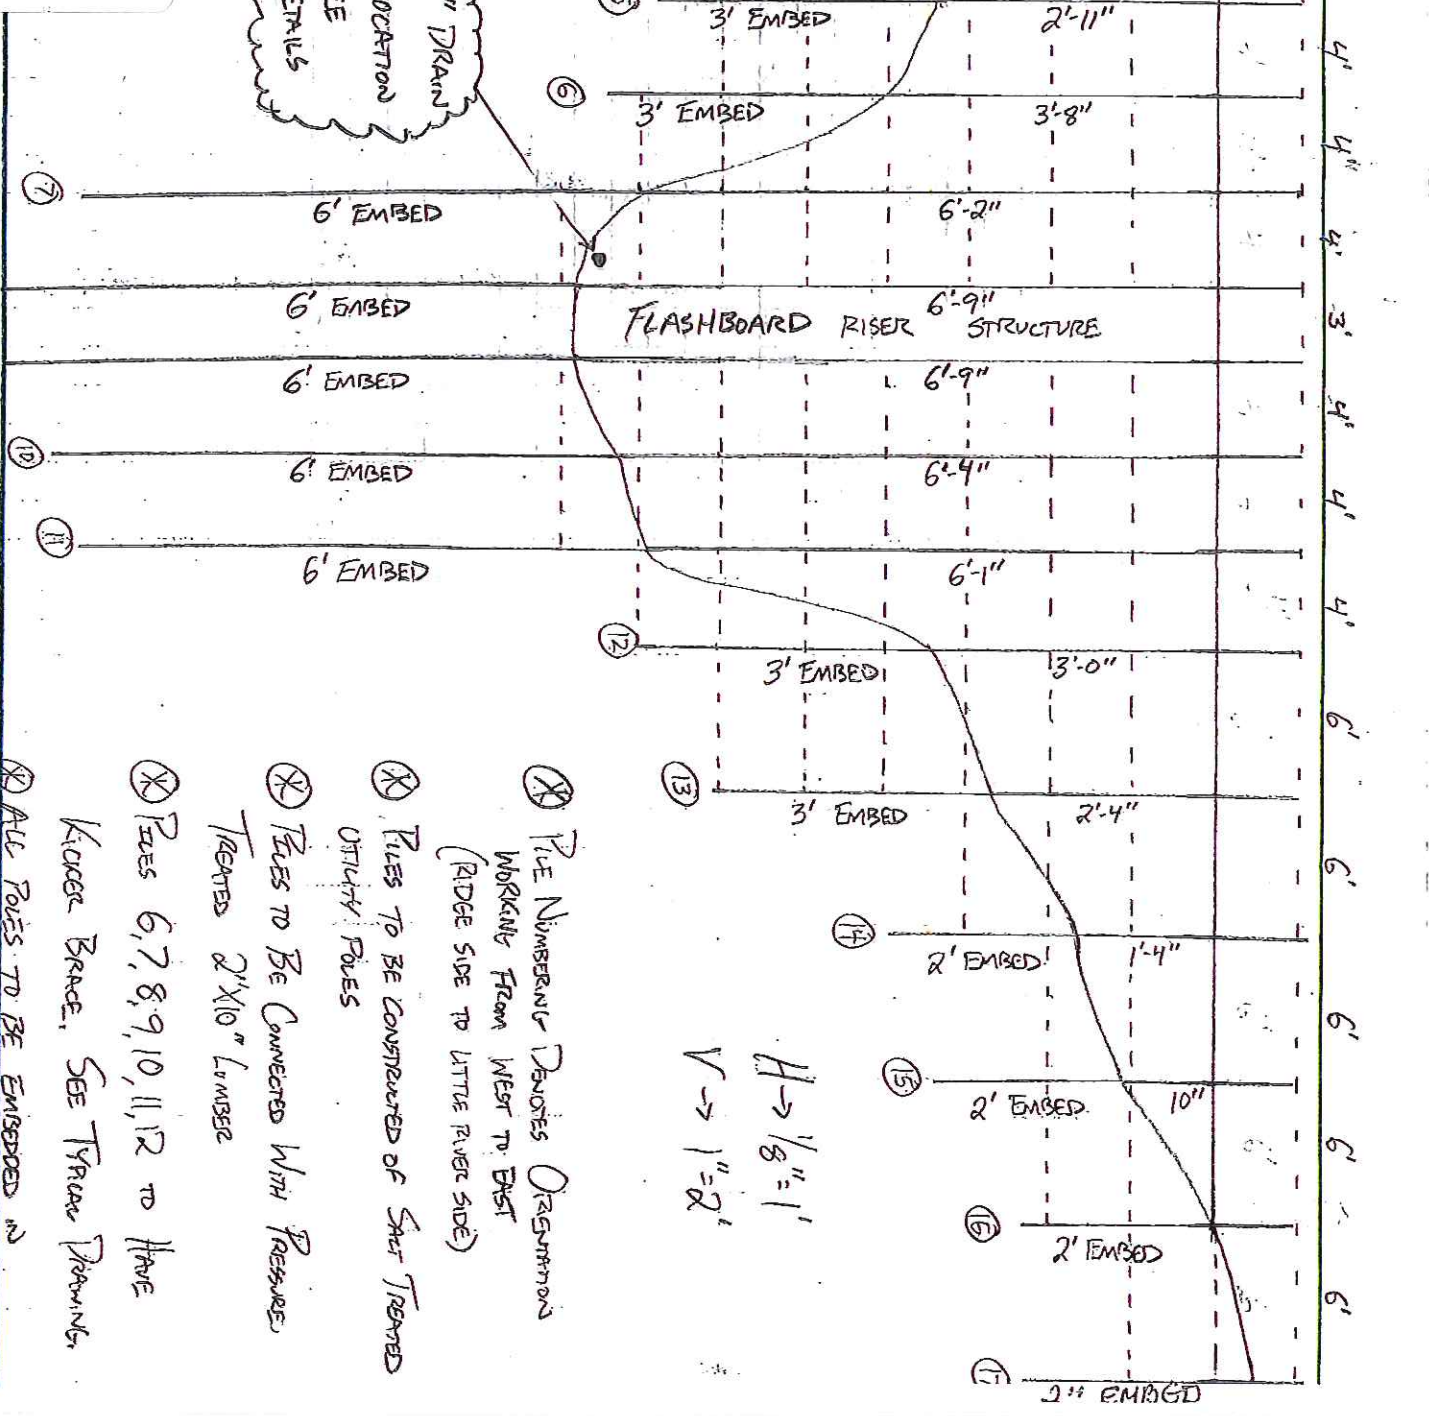 " DRAIN
OCATION
EE
ETAILS
3' EMBED
2'-11"
4'
6
3' EMBED
3'-8"
4"
7
6' EMBED
6'-2"
4'
6' EMBED
6'-9"
FLASHBOARD RISER STRUCTURE
3'
6' EMBED
6'-9"
4'
10
6' EMBED
6'-4"
4'
11
6' EMBED
6'-1"
4'
12
3' EMBED
3'-0"
6'
13
3' EMBED
2'-4"
6'
14
2' EMBED
1'-4"
6'
15
2' EMBED
10"
6'
16
2' EMBED
6'
17
2" EMBED
H → 1/8" = 1'
V → 1" = 2'
* PILE NUMBERING DENOTES ORIENTATION
WORKING FROM WEST TO EAST
(RIDGE SIDE TO LITTLE RIVER SIDE)
* PILES TO BE CONSTRUCTED OF SALT TREATED
UTILITY POLES
* PILES TO BE CONNECTED WITH PRESSURE
TREATED 2"X10" LUMBER
* PILES 6,7,8,9,10,11,12 TO HAVE
KICKER BRACE. SEE TYPICAL DRAWING.
* ALL POLES TO BE EMBEDDED IN